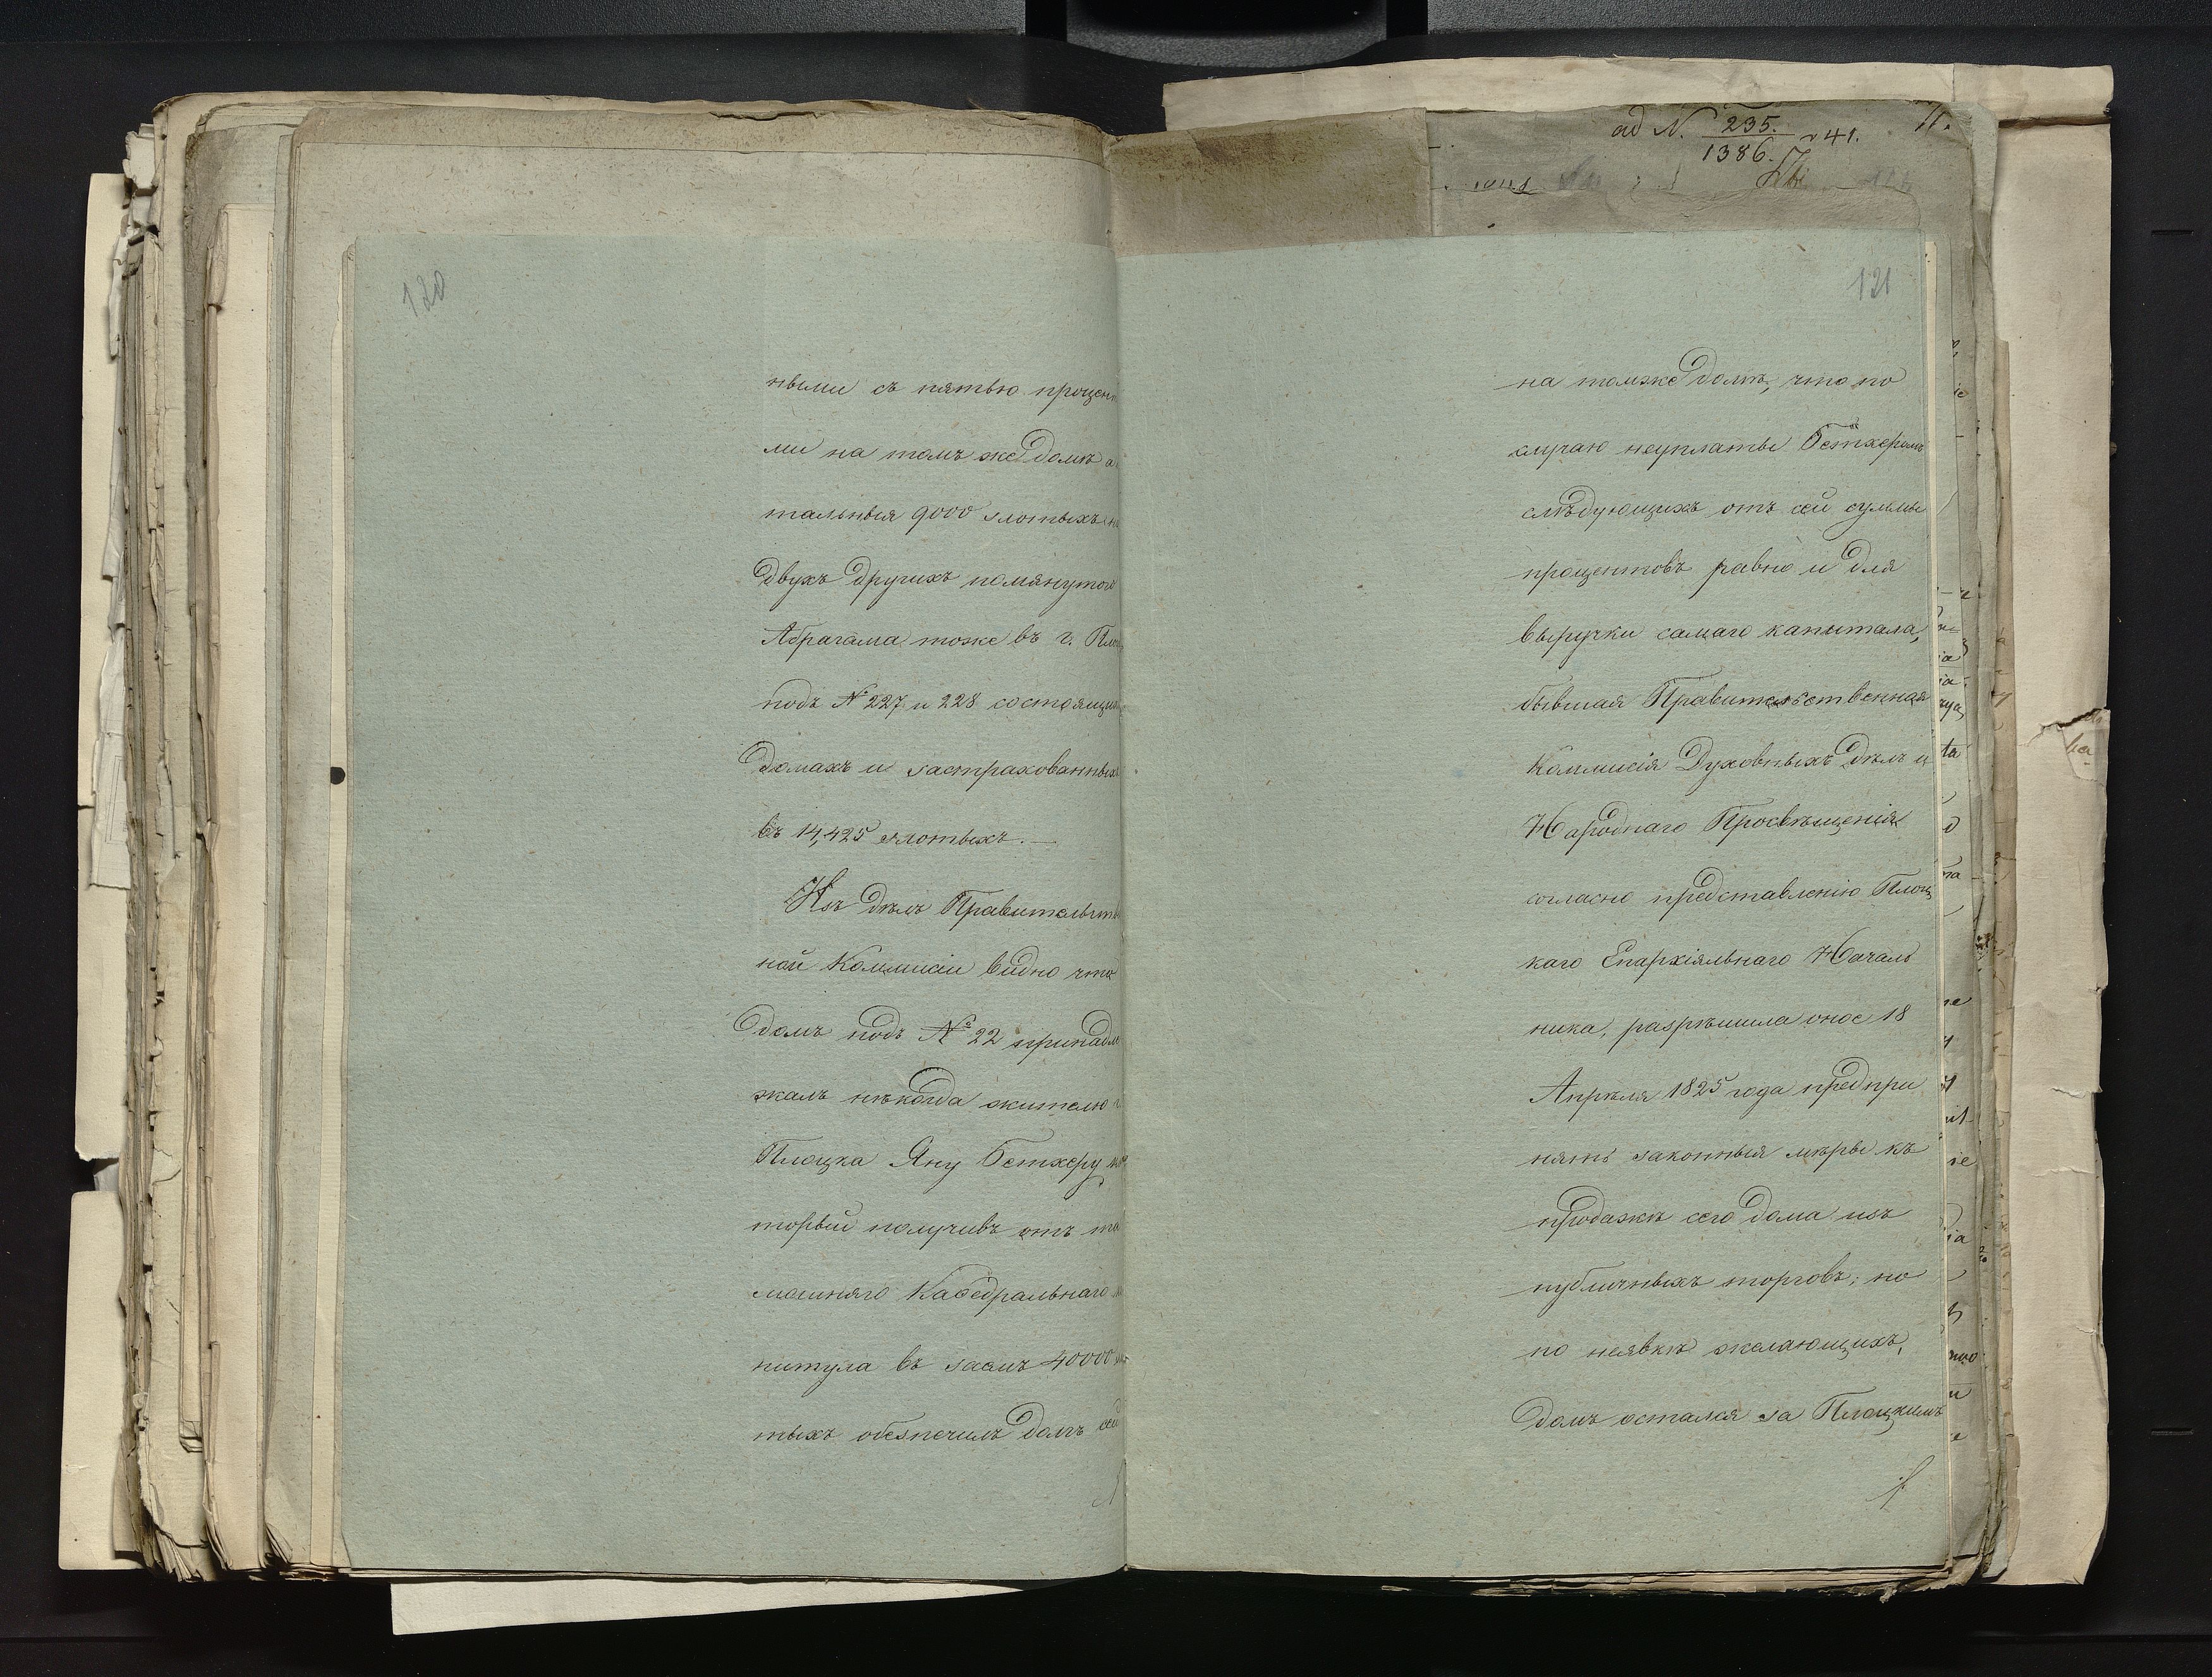 120
ными съ пятью процен
ми на томъ же домѣ а
тальныя 9000 злотыхъ на
двухъ другихъ помянутой
Абрагама тоже въ г. Пло
подъ № 227 и 228 состоящи
домахъ и застрахованныхъ
въ 14,425 злотыхъ. —
Изъ дѣлъ Правительств
ной Коммисіи видно что
домъ подъ № 22 принадле
жалъ нѣкогда жителю г
Плоцка Яну Бетхеру ко
торый получивъ отъ та
мошняго Каѳедральнаго
питула въ заемъ 40000 зло
тыхъ обезпечилъ долгъ сей
ad N. 235./1386. 41.
11.
121
на томже домѣ, что по
случаю неуплаты Бетхеромъ
слѣдующихъ отъ сей суммы
процентовъ равно и для
выручки самаго капитала,
бывшая Правительственная
Коммисія Духовныхъ Дѣлъ и
Народнаго Просвѣщенія
согласно представленію Плоц
каго Епархіяльнаго Началь
ника, разрѣшила оное 18
Апрѣля 1825 года предпри
нять законныя мѣры къ
продажѣ сего дома изъ
публичныхъ торговъ; но
по неявкѣ желающихъ,
домъ остался за Плоцкимъ